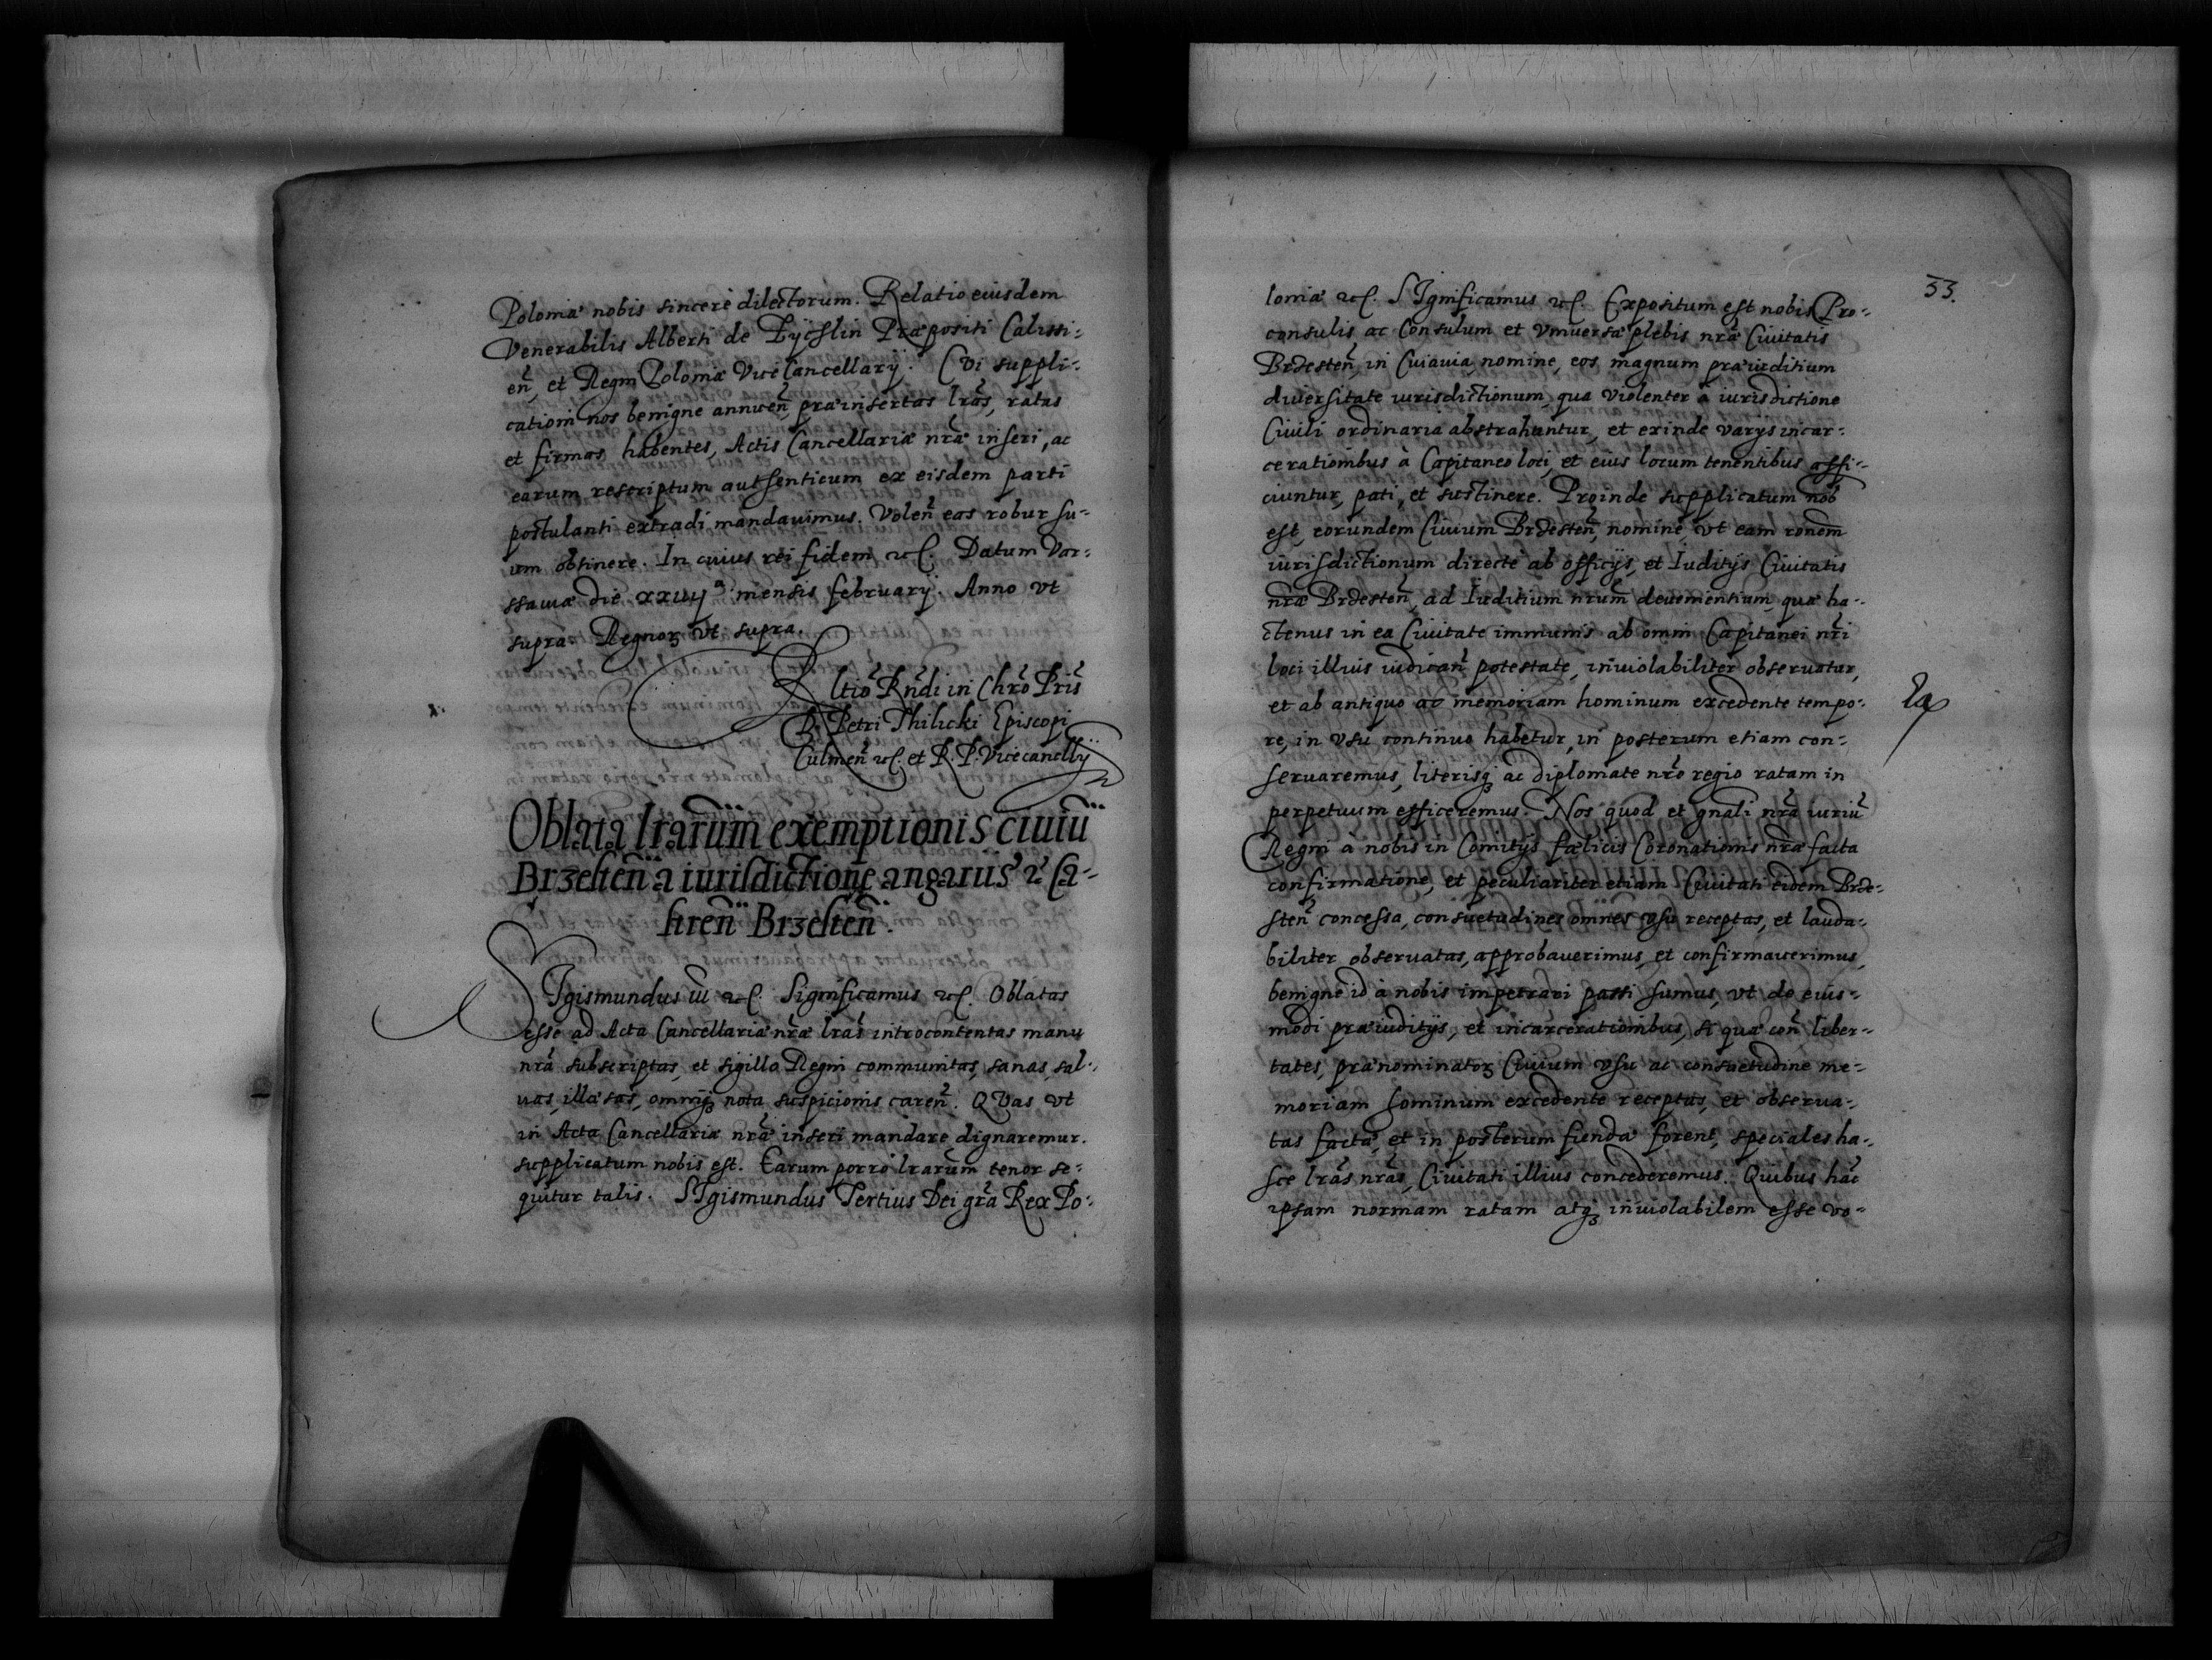 Poloniæ nobis sincerè dilectorum. Relatio eiusdem
Venerabilis Alberti de Præpositi Calissi-
eñ, et Regni Poloniæ ViceCancellarij. CVi suppli-
cationi nos benigne annueñ, præinsertas lrãs, ratas
et firmas habentes, Actis Cancellariæ nrãe inseri, ac
earum rescriptum authenticum ex eisdem parti
postulanti extradi mandauimus. Voleñ eas robur su-
um obtinere. In cuius rei fidem etc. Datum Var-
ssauiæ die mensis februarij. Anno vt
supra Regnoꝝ vt supra.
Rltiõ Rñdi in Chrõ Prĩs
D. Petri Thilicki Episcopi
Culmeñ etc. et R. P. Vicecancllij
Oblata lrarũm exemptionis ciuiũ
Brzesteñ a iurisdictione angariis et Ca-
streñ Brzesteñ.
SIgismundus iii etc. Significamus etc. Oblatas
esse ad Acta Cancellariæ nrãe lrãs introcontentas manu
nrã subscriptas, et sigillo Regni communitas, sanas, sal-
uas, illæsas, omniqꝫ nota suspicionis careñ. QVas vt
in Acta Cancellariæ nrãe inseri mandare dignaremur.
supplicatum nobis est. Earum porrò lrarũm tenor se-
quitur talis. SIgismundus Tertius Dei grã Rex Po-
53.
loniæ etc. SIgnificamus etc. Expositum est nobis Pro-
consulis ac Consulum et Vniuersæ plebis nrãe Ciuitatis
Brzesteñ, in Cuiauia, nomine, eos magnum præiuditium
diuersitate iurisdictionum, qua violenter à iurisdictione
Ciuili ordinaria abstrahuntur, et exinde varijs incar-
cerationibus à Capitaneo loci, et eius locum tenentibus affi-
ciuntur, pati, et sustinere. Proinde supplicatum nob
est, eorundem Ciuium Brzesteñ, nomine, vt eam ronem
iurisdictionum directè ab officijs, et Iuditijs Ciuitatis
nrãe Brzesteñ, ad Iuditium nrũm deuenientium, quæ ha-
ctenus in ea Ciuitate immunis ab omni Capitanei nrĩ
loci illius iudicañ potestate, inuiolabiliter obseruatur,
et ab antiquo ac memoriam hominum excedente tempo-
re, in vsu continuo habetur, in posterum etiam con-
seruaremus, literisqꝫ ac diplomate nrõ regio ratam in
perpetuum efficeremus. Nos quod et gnãli nrã iuriũ
Regni à nobis in Comitijs fælicis Coronationis nrãe facta
confirmatione, et peculiariter etiam Ciuitati eidem Brze-
steñ concessa, consuetudines omnes vsu receptas, et lauda-
biliter obseruatas, approbauerimus, et confirmauerimus,
benigne id à nobis impetrari passi sumus, vt de eius-
modi præiuditijs, et incarcerationibus, si quæ coñ liber-
tates, prænominatoꝝ Ciuium vsu ac consuetudine me-
moriam hominum excedente receptas, et obserua-
tas factæ, et in posterum fiendæ forent, speciales ha-
sce lrãs nrãs, Ciuitati illius concederemus. Quibus hãc
ipsam normam ratam atqꝫ inuiolabilem esse vo-